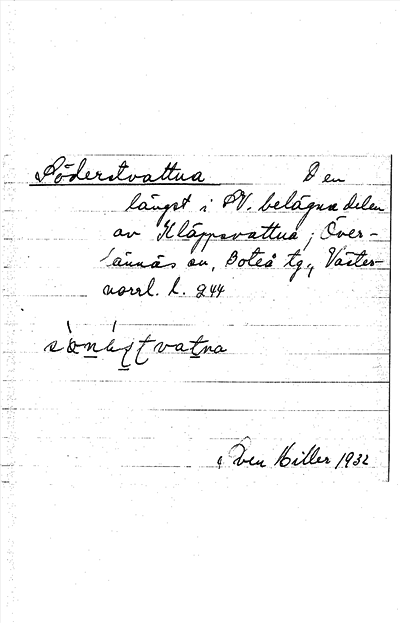 Söderstvattna Den
längst i SV. belägna delen
av Kläppsvattna; Över-
lännäs sn, Boteå tg., Väster-
norrl. l. 244
vatna
Sven Hiller 1932